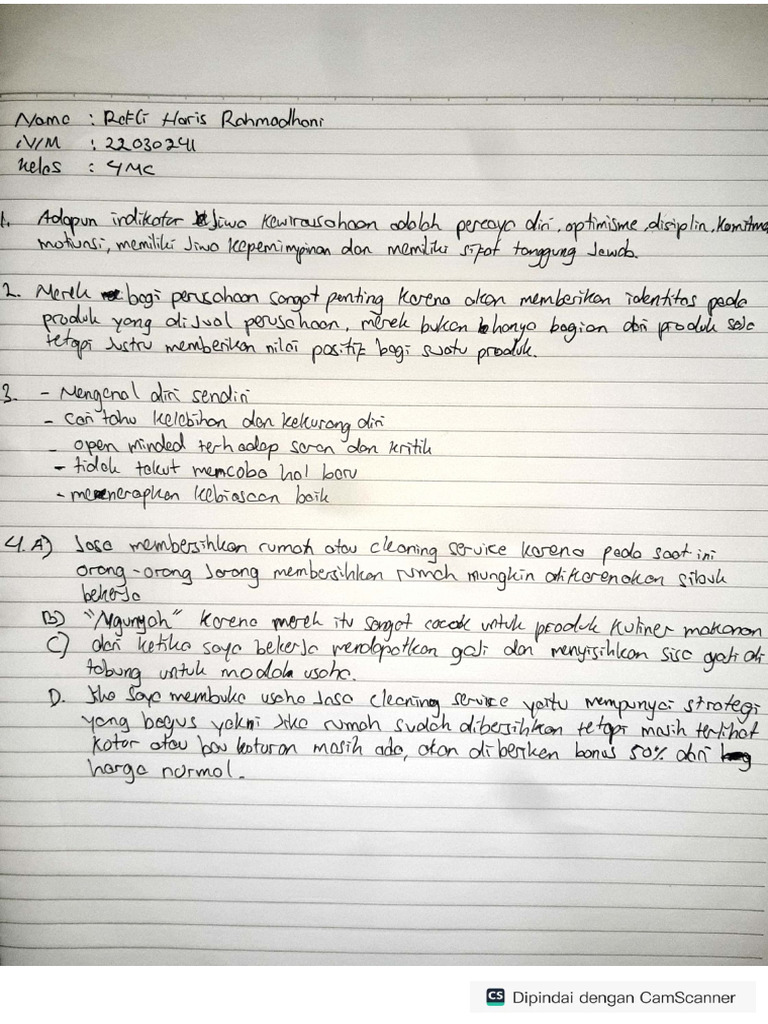 Nama : Refli Haris Rahmadhani
NIM : 22030241
Kelas : 4MC
1. Adapun indikator Jiwa kewirausahaan adalah percaya diri, optimisme, disiplin, Komitme
motivasi, memiliki Jiwa kepemimpinan dan memiliki sifat tanggung Jawab.
2. Merek bagi perusahaan sangat penting karena akan memberikan identitas pada
produk yang dijual perusahaan, merek bukan hanya bagian dari produk saja
tetapi Justru memberikan nilai positif bagi suatu produk.
3. - Mengenal diri sendiri
- cari tahu kelebihan dan kekurang diri
- open minded terhadap saran dan kritik
- tidak takut mencoba hal baru
- menerapkan kebiasaan baik
4. A) Jasa membersihkan rumah atau cleaning service karena pada saat ini
orang-orang Jarang membersihkan rumah mungkin dikarenakan sibuk
bekerja
B) "Ngunyah" karena merek itu sangat cocok untuk produk kuliner makanan
C) dari ketika saya bekerja mendapatkan gaji dan menyisihkan sisa gaji di
tabung untuk modal usaha.
D. Jika saya membuka usaha Jasa cleaning service yaitu mempunyai strategi
yang bagus yakni Jika rumah sudah dibersihkan tetapi masih terlihat
kotor atau bau kotoran masih ada, akan diberiken bonus 50% dari
harga normal.
CS Dipindai dengan CamScanner